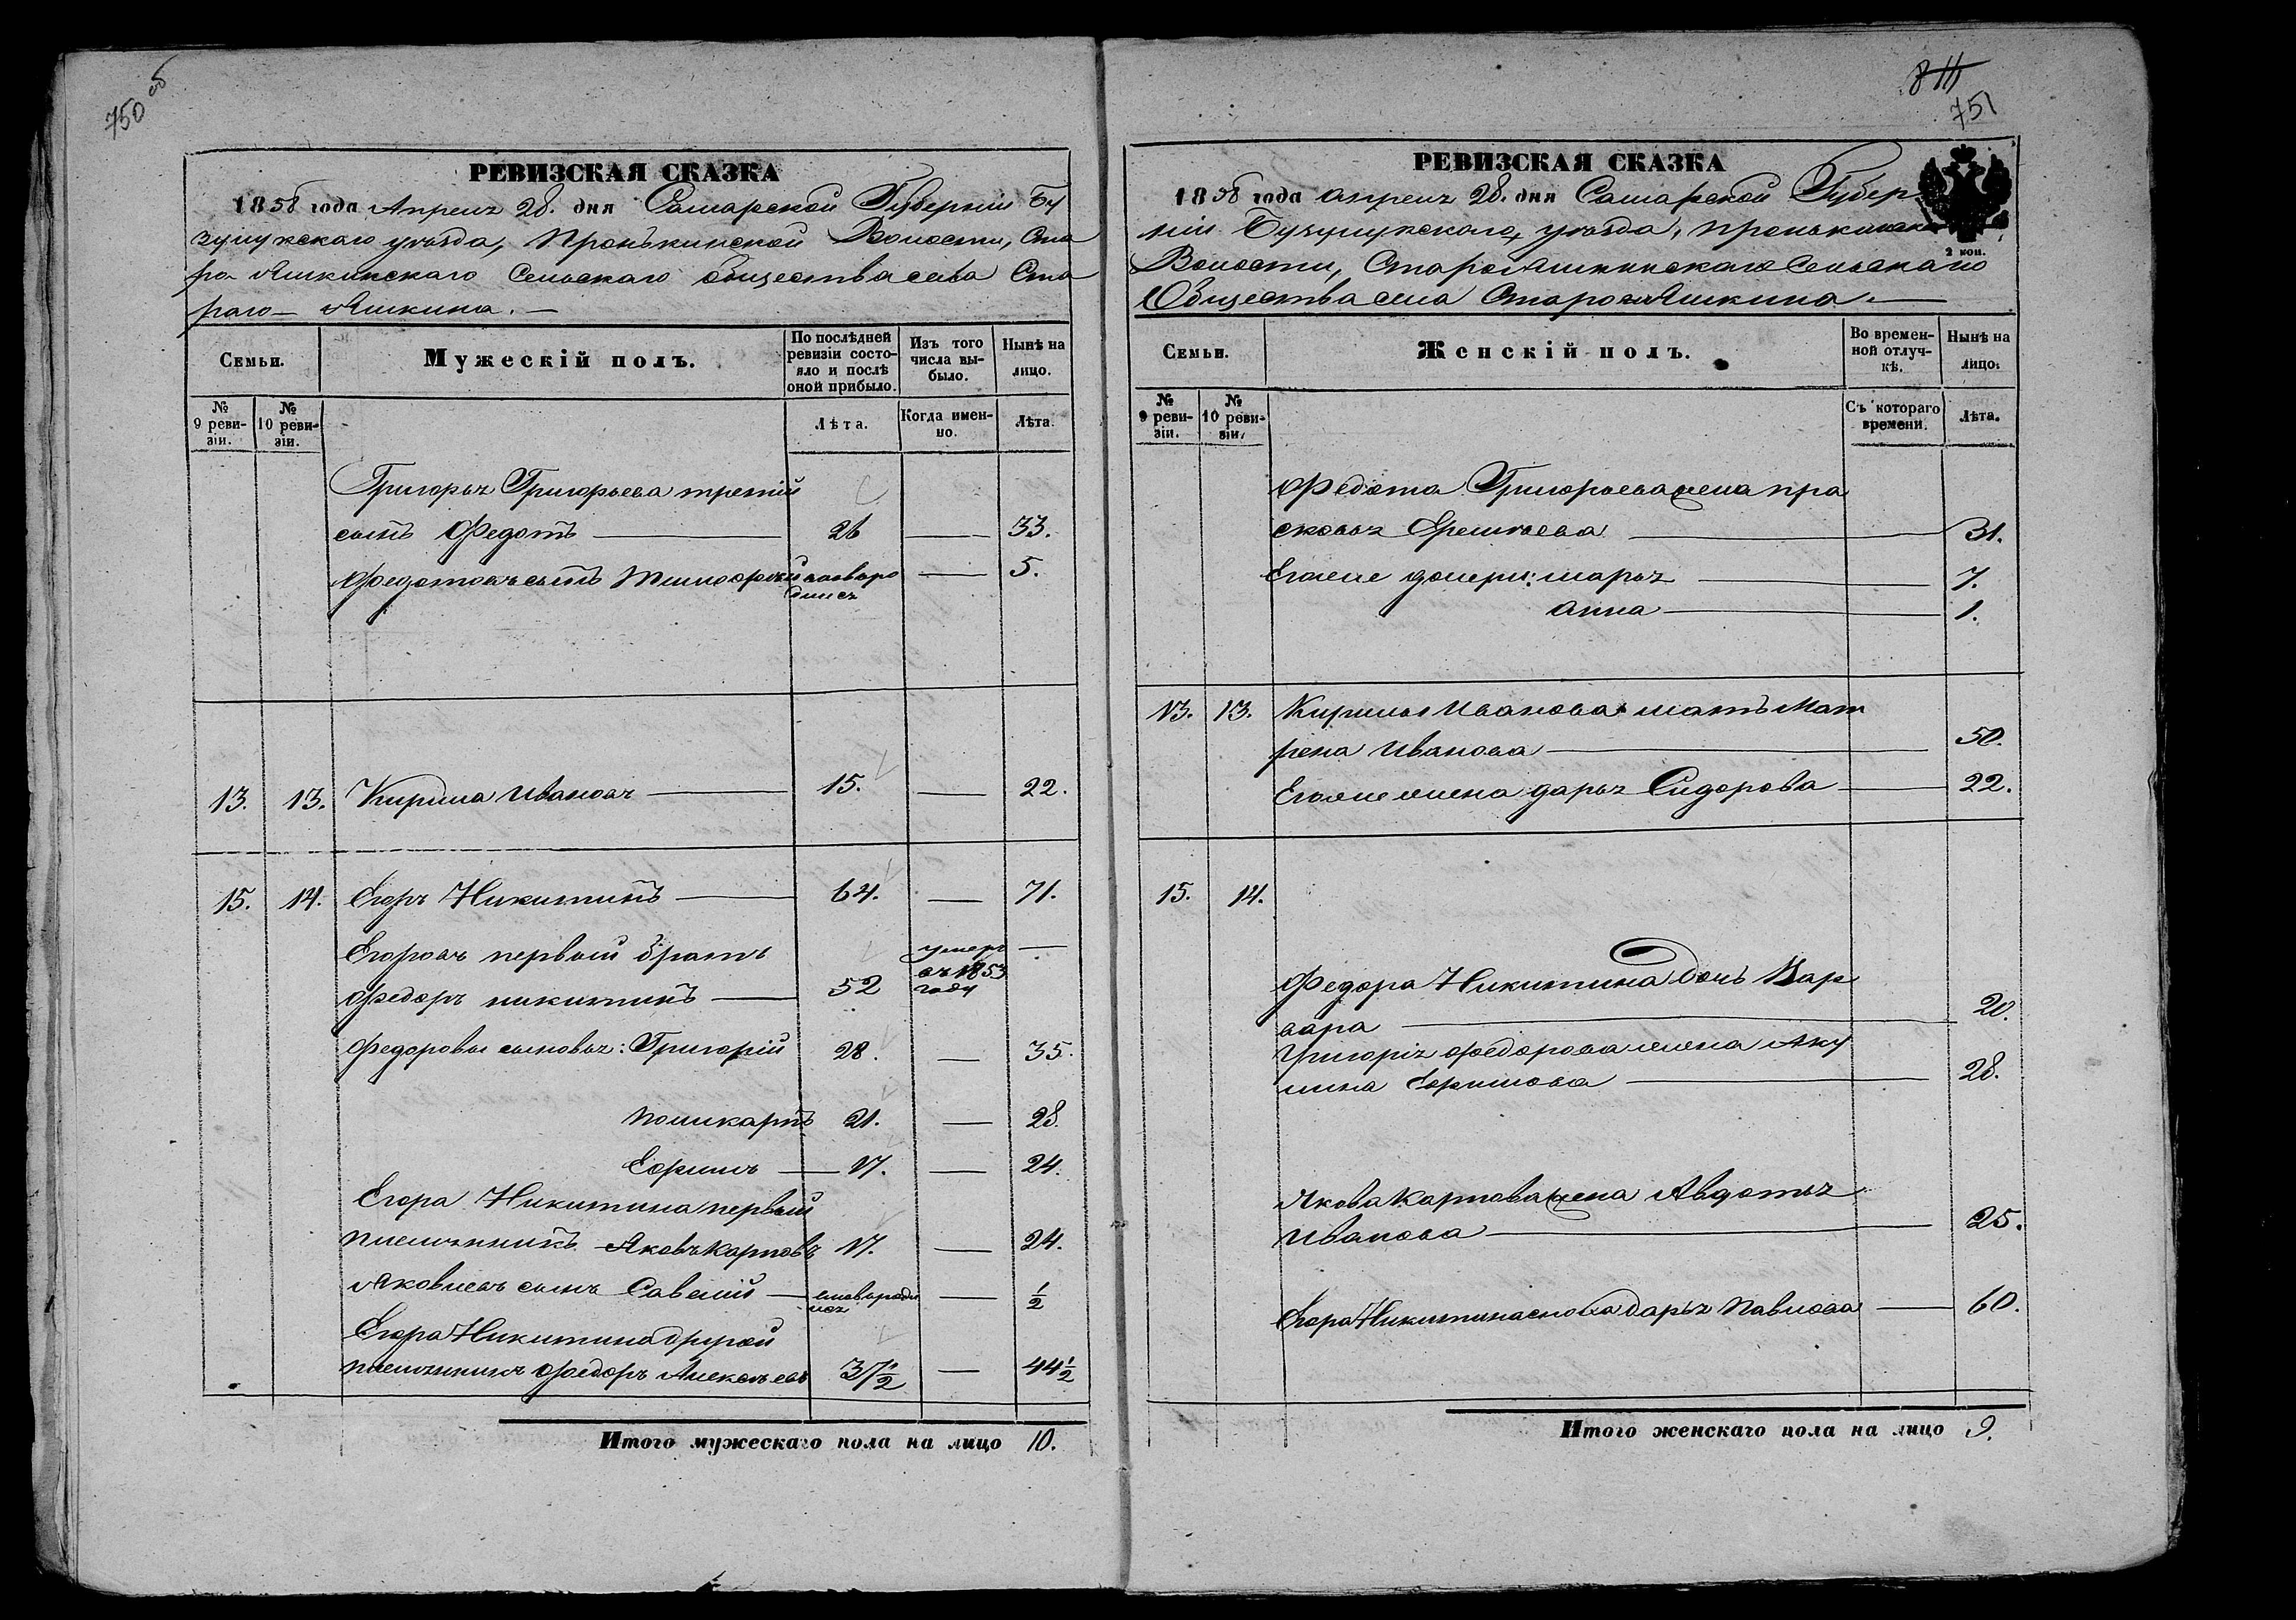 750 об
РЕВИЗСКАЯ СКАЗКА
1858 года Апреля 28. дня Самарской Губерніи Бу
зулукскаго уѣзда, Пронькинской Волости, Ста
ро Яшкинскаго Сельскаго общества села Ста
раго Яшкина. —
Семьи.
Мужескій полъ.
По послѣдней ревизіи состояло и послѣ оной прибыло.
Изъ того числа выбыло.
Нынѣ на лицо.
№ 9 ревизіи.
№ 10 ревизіи.
Лѣта.
Когда именно.
Лѣта.
Григорья Григорьева третій
сынъ Федотъ — 26 — 33.
Федотовъ сынъ Тимофей новоро — 5.
дился
13. 13. Кирила Ивановъ — 15. — 22.
15. 14. Егоръ Никитинъ — 64. — 71.
Егоровъ первый братъ умеръ —
Федоръ никитинъ — 52 въ 1853 году
Федоровы сыновья: Григорій 28. — 35.
поликарпъ 21. — 28.
Ефимъ — 17. — 24.
Егора Никитина первый
племянникъ Яковъ Карповъ 17. — 24.
Яковлевъ сынъ Савелій — —  ½
Егора Никитина другой
племянникъ Федоръ Алексѣевъ 37½ — 44½
Итого мужескаго пола на лицо 10.
811
751
РЕВИЗСКАЯ СКАЗКА
1858 года апреля 28. дня Самарской Губер
ніи Бузулукскаго уѣзда, пронькинской
Волости, СтароЯшкинскаго Сельскаго
Общества села Стараго Яшкина. —
2 коп.
Семьи.
Женскій полъ.
Во временной отлучкѣ.
Нынѣ на лицо.
№ 9 ревизіи.
№ 10 ревизіи.
Съ котораго времени.
Лѣта.
Федота Григорьева жена пра
сковья Еремѣева — 31.
Егоже дочери: марья — 7.
анна — 1.
13. 13. Кирилы Иванова мать Мат
рена Иванова — 50.
Егоже жена дарья Сидорова — 22.
15. 14.
Федора Никитина дочь Вар
вара — 20.
Григорія федорова жена Аку
лина Ефимова — 28.
Якова Карпова жена Авдотья
Иванова — 25.
Егора Никитина сноха дарья Павлова — 60.
Итого женскаго пола на лицо 9.